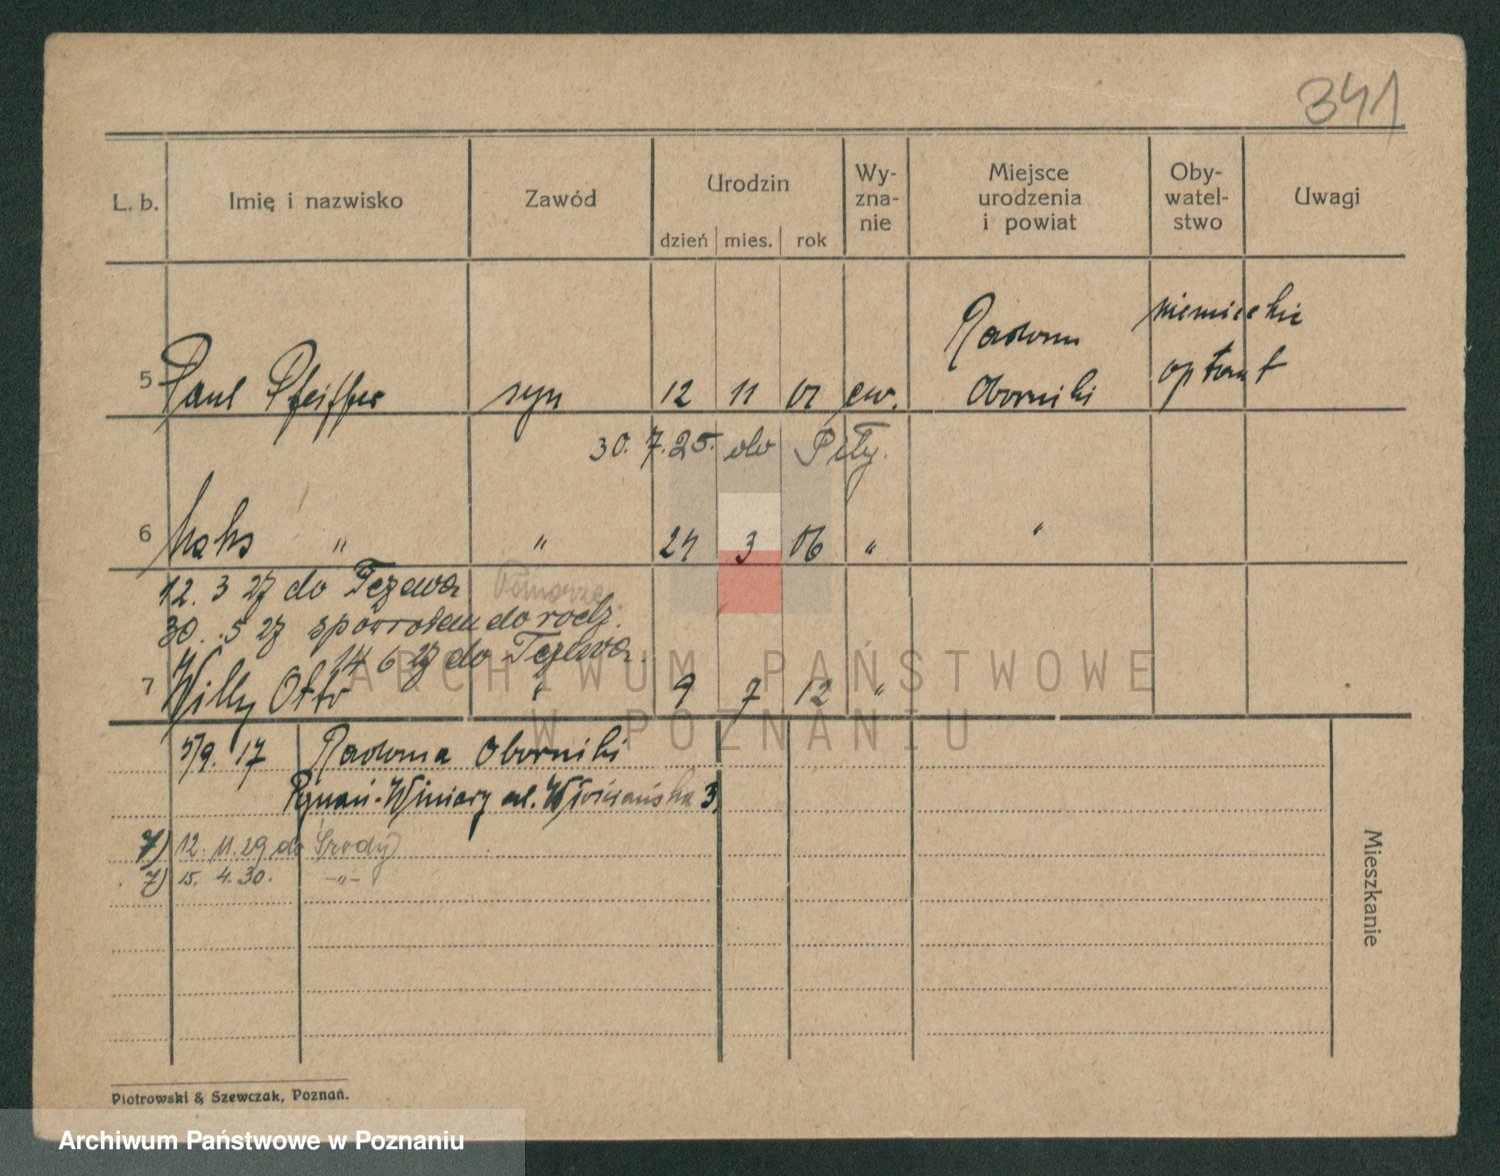 341
L. b. Imię i nazwisko Zawód Urodzin dzień mies. rok Wy-zna-nie Miejsce urodzenia i powiat Oby-watel-stwo Uwagi
5 Paul Pfeiffer syn 12 11 01 ew. Radom Oborniki niemieckie optant
30. 7. 25. do Piły.
6 Maks " " 24 3 06 " "
12. 3 27 do Tczewa Pomorze.
30. 5 27 spowrotem do rodz.
14 6 27 do Tczewa.
7 Willy Otto " 9 7 12 "
5/9. 17 Radoma Oborniki
Poznań-Winiary ul. Włościańska 3
7) 12. 11. 29 do Środy
7) 15. 4. 30. -"-
Mieszkanie
Piotrowski & Szewczak, Poznań.
ARCHIWUM PAŃSTWOWE
W POZNANIU
Archiwum Państwowe w Poznaniu